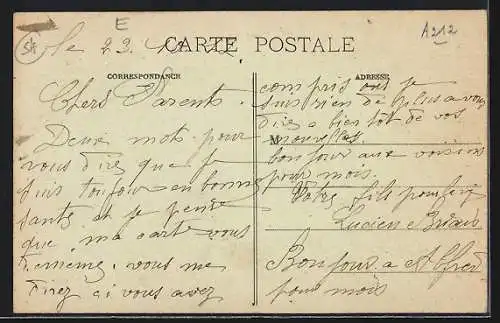 E
A212
54
le 23
CARTE POSTALE
CORRESPONDANCE
ADRESSE
Chers Parents.
Deux mots pour
vous direz que je
suis toujour en bonne
santé et je pense
que ma carte vous
vous me
direz si vous avez
compris ous je
suis rien de plus a vous
direz a bien tôt de vos
M
nouvelles
bonjour aux voisins
pour mois.
Votre fils pour
Lucien
Bonjour a
pour mois